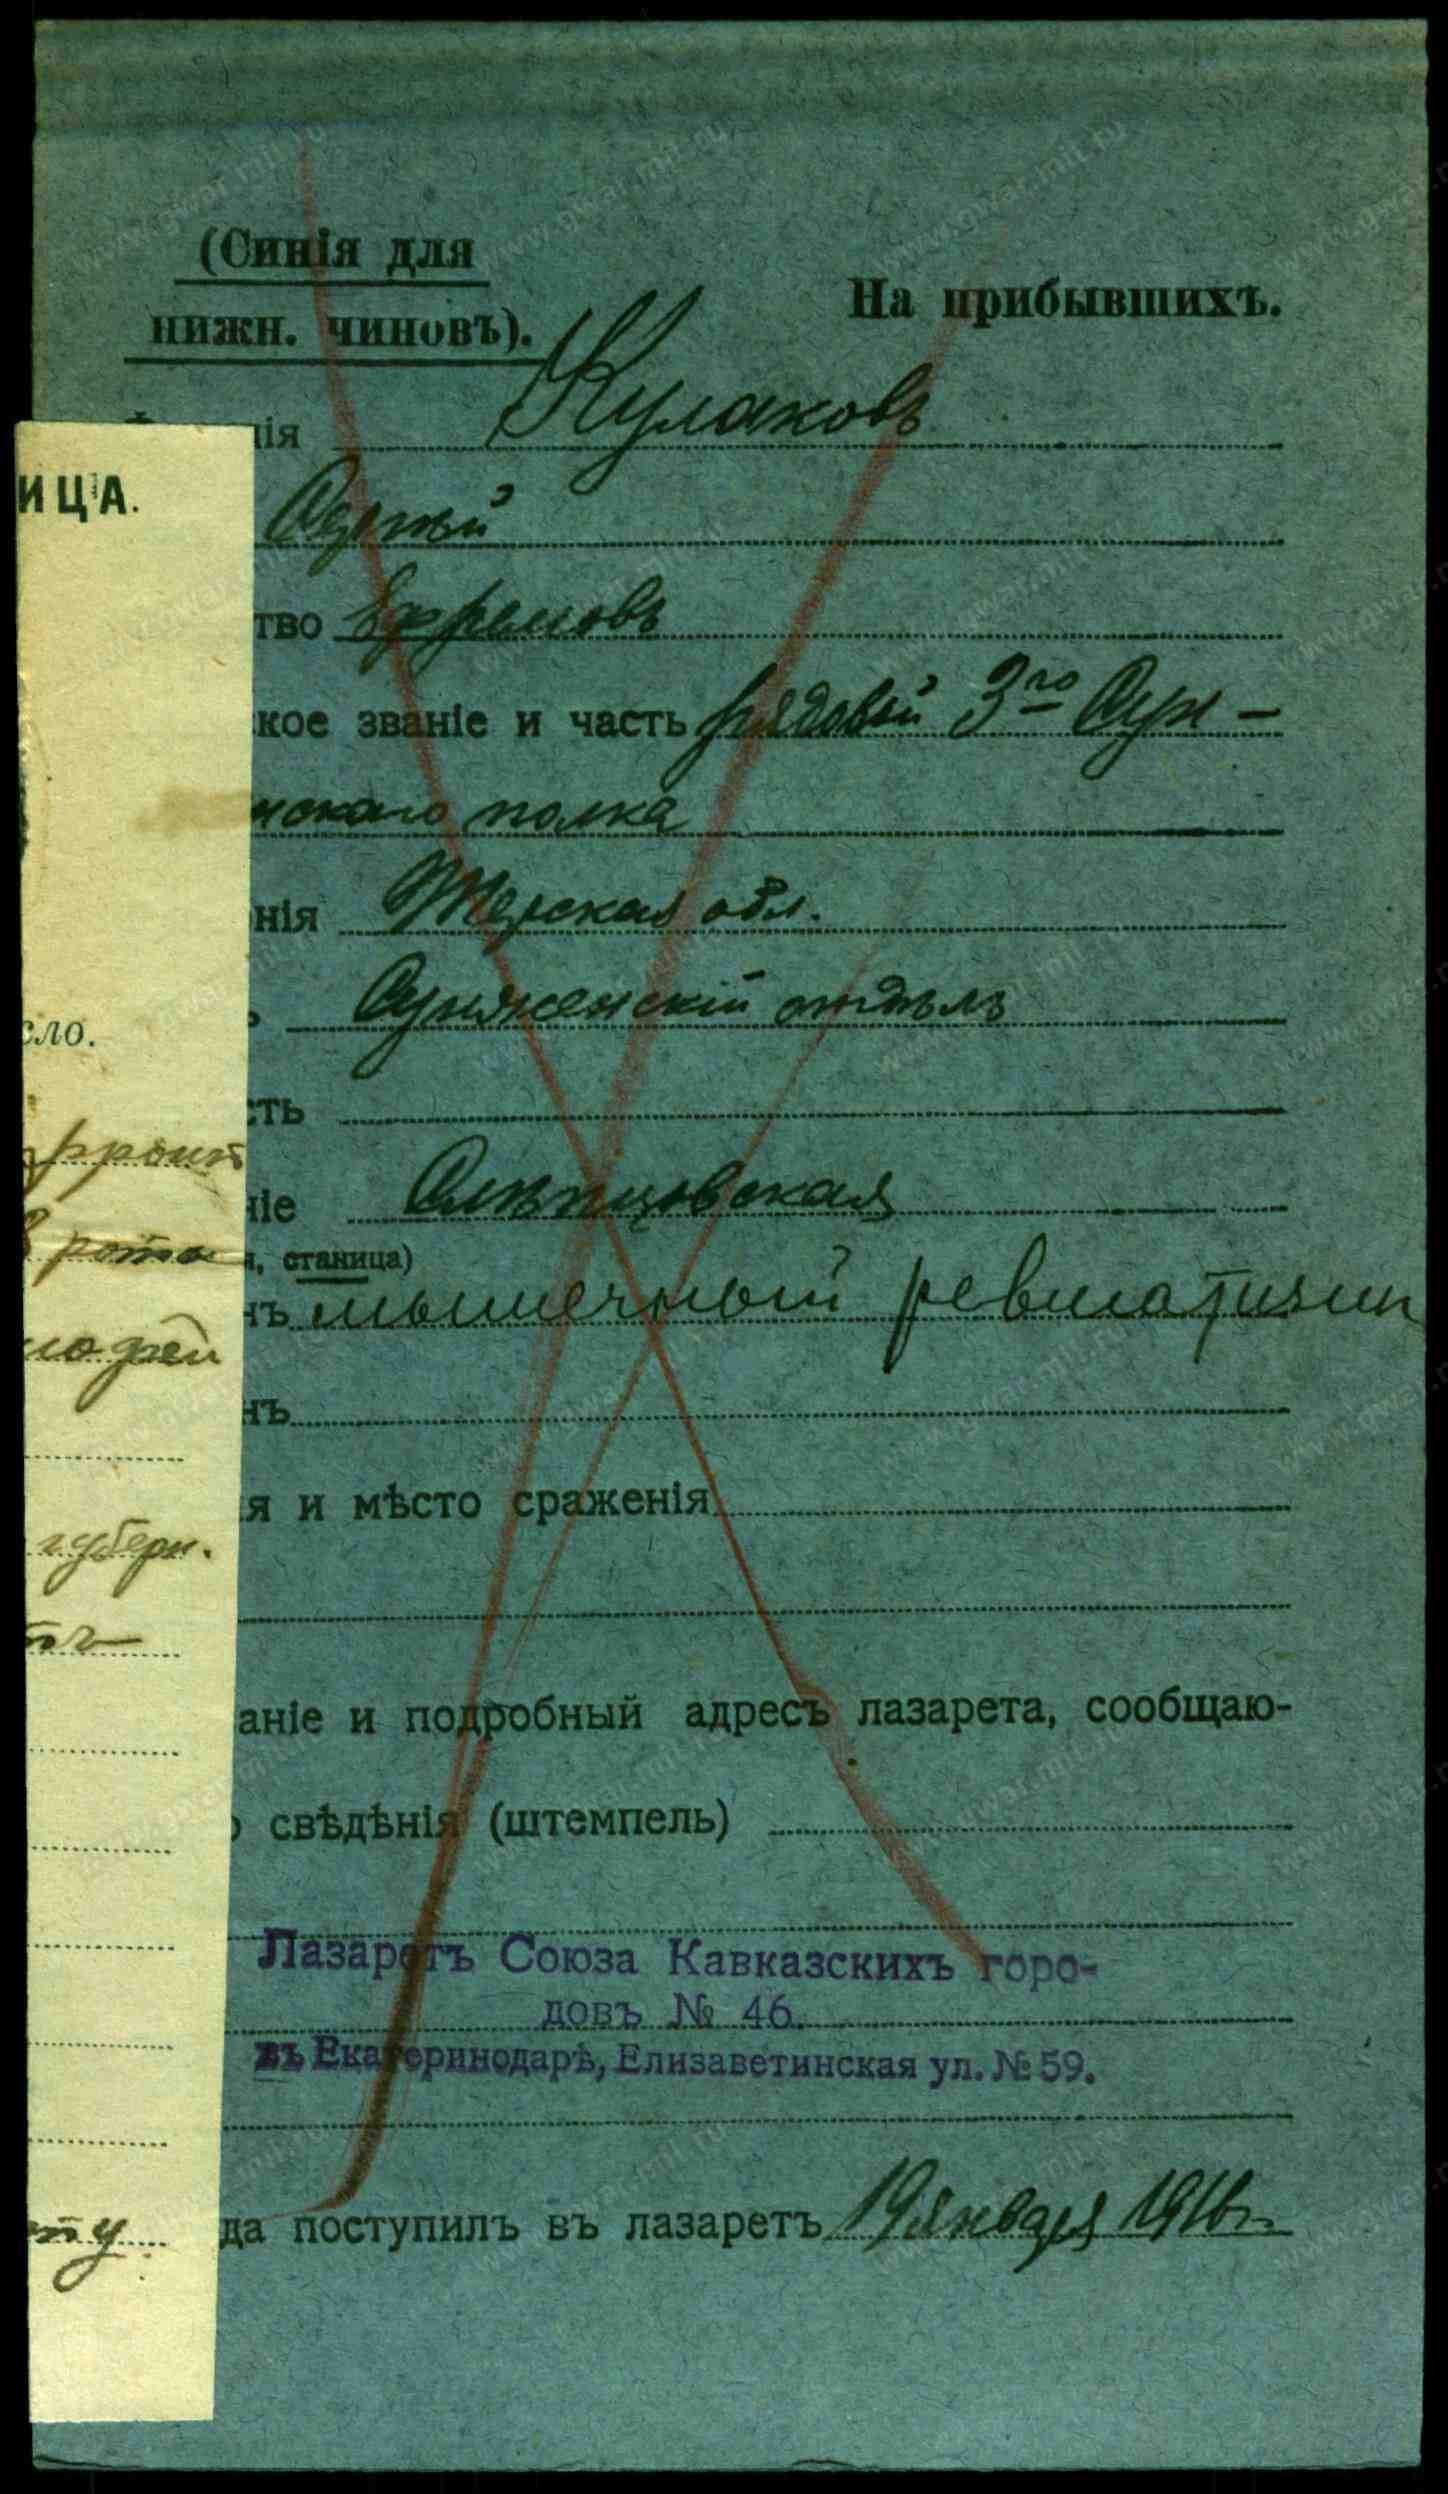 (Синія для
нижн. чиновъ).
На прибывшихъ.
нія Кулаковъ
ИЦА.
Сергѣй
тво Ефремовъ
ское званіе и часть рядовой 3го Сун-
нскаго полка
нія Терская обл.
ъ Сунженскій отдѣлъ
сло.
сть
фронт
ніе Слѣпцовская
рота
я, станица)
нъ мышечный ревматизм
нъ
ія и мѣсто сраженія
губерн.
аніе и подробный адресъ лазарета, сообщаю-
о свѣдѣнія (штемпель)
Лазаретъ Союза Кавказскихъ горо-
довъ № 46.
въ Екатеринодарѣ, Елизаветинская ул. № 59.
да поступилъ въ лазаретъ 19 января 1916 г.
www.gwar.mil.ru